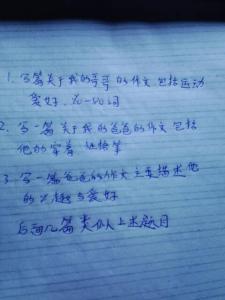 1. 写篇关于我的哥哥的作文,包括运动
爱好. 70-80词
2. 写一篇关于我的爸爸的作文 包括
他的穿着
3. 写一篇爸爸的作文 主要描述他
的兴趣与爱好
后面几篇类似上述题目